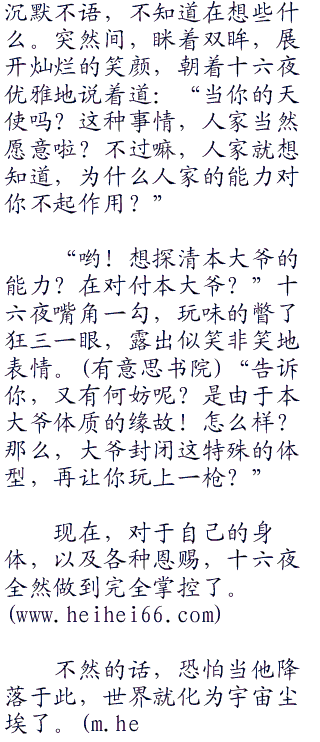 沉默不语，不知道在想些什
么。突然间，眯着双眸，展
开灿烂的笑颜，朝着十六夜
优雅地说着道：“当你的天
使吗？这种事情，人家当然
愿意啦？不过嘛，人家就想
知道，为什么人家的能力对
你不起作用？”
“哟！想探清本大爷的
能力？在对付本大爷？”十
六夜嘴角一勾，玩味的瞥了
狂三一眼，露出似笑非笑地
表情。(有意思书院)“告诉
你，又有何妨呢？是由于本
大爷体质的缘故！怎么样？
那么，大爷封闭这特殊的体
型，再让你玩上一枪？”
现在，对于自己的身
体，以及各种恩赐，十六夜
全然做到完全掌控了。
(www.heihei66.com)
不然的话，恐怕当他降
落于此，世界就化为宇宙尘
埃了。(m.he